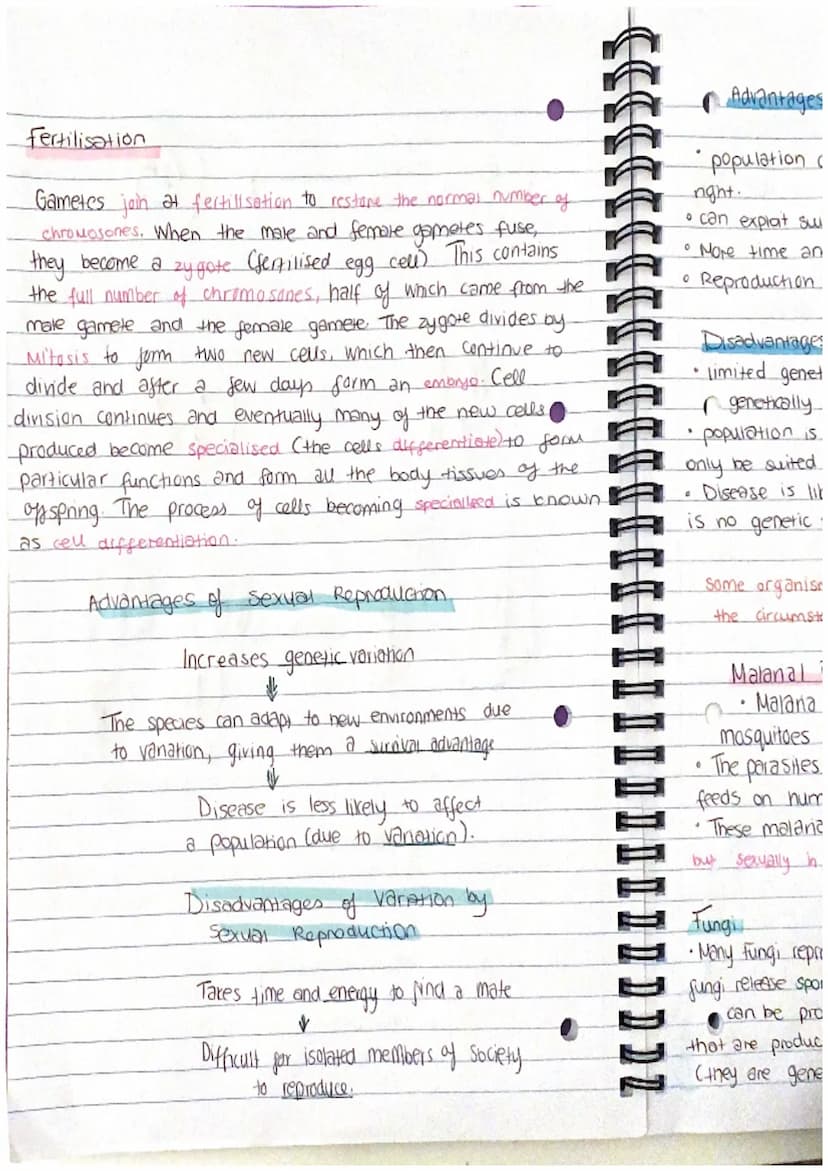 Fertilisation
Gametes join at fertilisation to restore the normal number of
chromosones. When the male and female gametes fuse,
they become a zygote (fertilised egg cell) This contains
the full number of chromosones, half of which came from the
male gamete and the female gamete. The zygote divides by
Mitosis to form two new cells, which then continue to
divide and after a few days form an embryo. Cell
division continues and eventually many of the new cells
produced become specialised (the cells differentiate) to form
particular functions and form all the body tissues of the
offspring. The process of cells becoming specialised is known
as cell differentiation.
Advantages of Sexual Reproduction
Increases genetic variation
The species can adapt to new environments due
to variation, giving them a survival advantage
Disease is less likely to affect
a population (due to variation).
Disadvantages of Variation by
Sexual Reproduction
Takes time and energy to find a mate
Difficult for isolated members of society
to reproduce.
Advantages
• population
right.
• can exploit
• More time an
• Reproduction
Disadvantages
• limited genet
genetically
• population is
only be suited
• Disease is li
is no genetic
Some organis
the circumst
Malarial
• Malaria
mosquitoes
• The parasites
feeds on hum
• These malaria
but sexually
Fungi
• Many fungi repr
fungi release spo
can be pro
that are produc
(they are gene